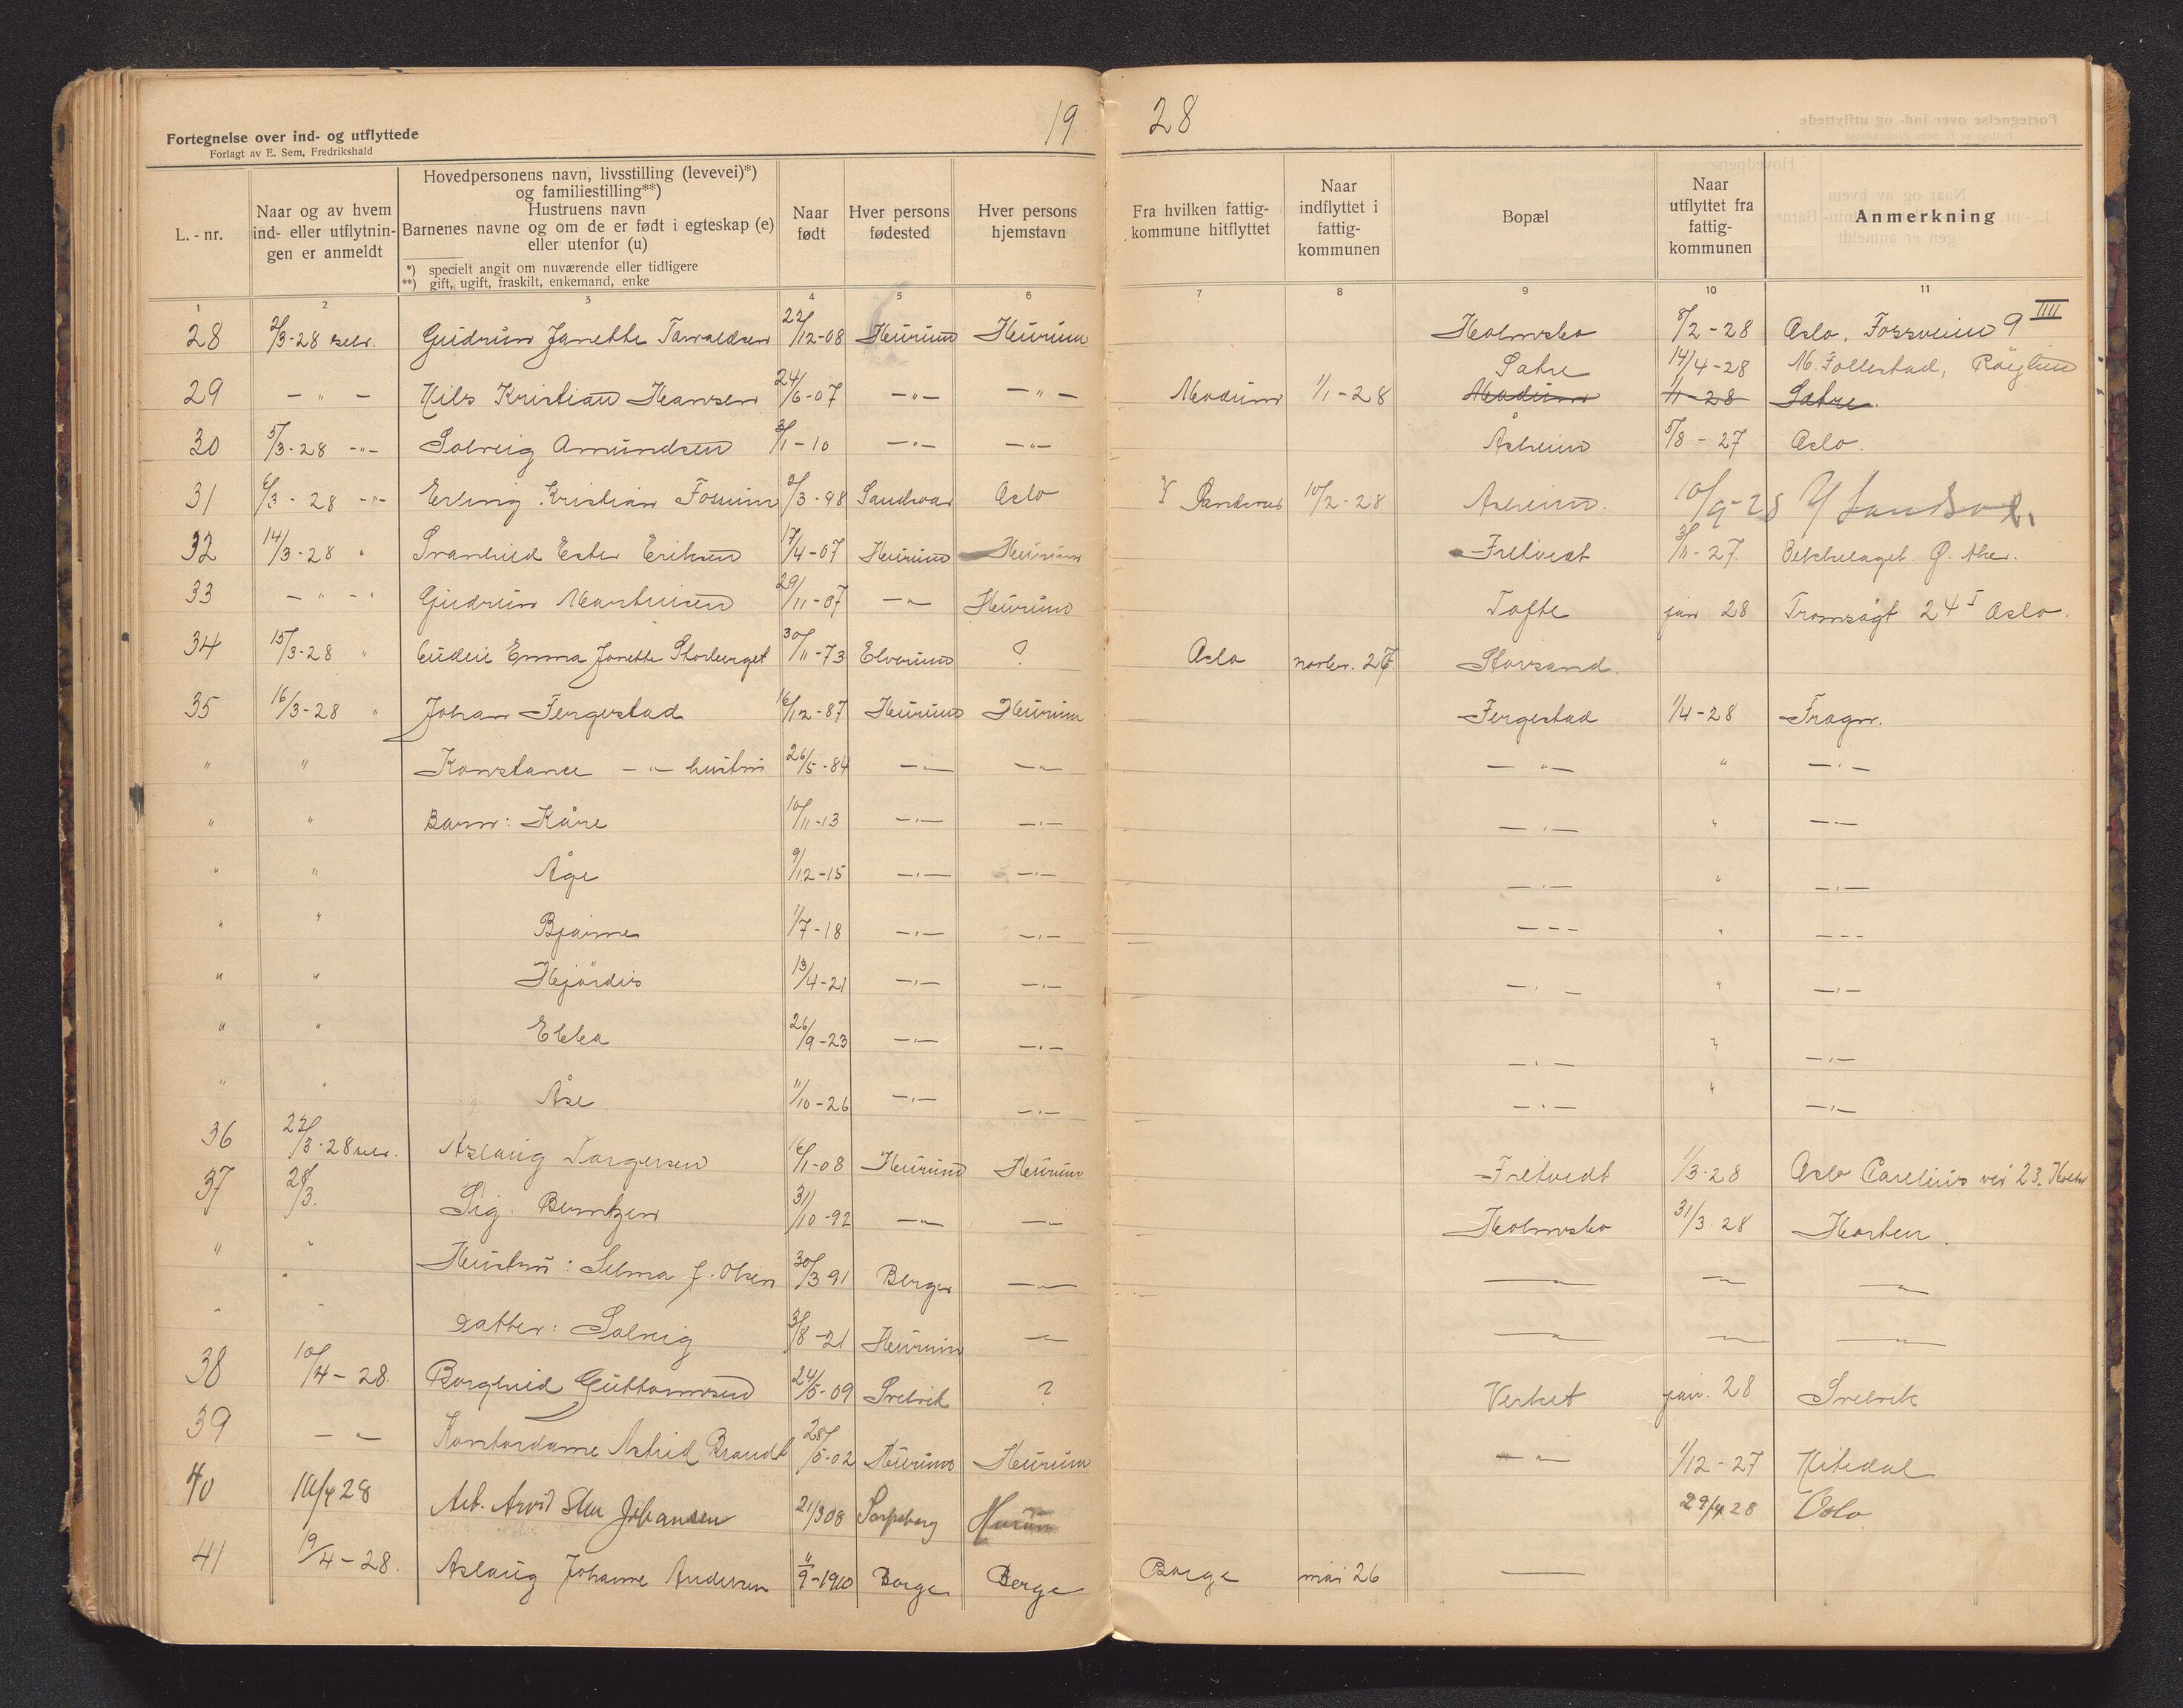 Fortegnelse over ind- og utflyttede
Forlagt av E. Sem, Fredrikshald
19 28
L. - nr.
Naar og av hvem ind- eller utflytningen er anmeldt
Hovedpersonens navn, livsstilling (levevei)*) og familiestilling**)
Hustruens navn
Barnenes navne og om de er født i egteskap (e) eller utenfor (u)
*) specielt angit om nuværende eller tidligere
**) gift, ugift, fraskilt, enkemand, enke
Naar født
Hver persons fødested
Hver persons hjemstavn
Fra hvilken fattigkommune hitflyttet
Naar indflyttet i fattigkommunen
Bopæl
Naar utflyttet fra fattigkommunen
Anmerkning
1 2 3 4 5 6 7 8 9 10 11
28 2/3-28 selv. Gudrun Janette Torvaldsen 22/12-08 Hurum Hurum Holmsbo 8/2-28 Oslo, Fossveien 9 IIII
Sætre 14/4-28 M. Follestad, Røyken
29 -"- Nils Kristian Hansen 24/6-07 -"- -"- Modum 1/1-28 Modum 1/1-28 Sætre.
30 5/3-28 -"- Solveig Amundsen 3/1-10 -"- -"- Åsheim 5/8-27 Oslo.
31 6/3-28 -"- Erling Kristian Fossum 2/3-98 Sandsvær Oslo Y Sandsvær 10/2-28 Åsheim. 10/9-28 Y Sandsv.
32 14/3-28 " Svanhild Ester Eriksen 17/4-07 Hurum Hurum Fretvedt 3/11-27. Bekkelaget Ø. Aker.
33 -"-" Gudrun Martinsen 29/11-07 -"- Hurum Tofte jan. 28 Tromsøgt 24 I Oslo.
34 15/3-28 " Emma Janette Storberget 30/11-73 Elverum ? Oslo novbr. 27. Storsand.
35 16/3-28 " Johan Fergestad 16/12-87 Hurum Hurum Fergestad 1/4-28 Frogn.
" " Konstance -"- hustru 26/5-84 -"- -"- -"- " -"-
" " Barn: Kåre 10/11-13 -"- -"- -"- " -"-
" " Åge 9/12-15 -"- -"- -"- " -"-
" " Bjarne 1/7-18 -"- -"- --- " ---
" " Hjørdis 13/4-21 -"- -"- -"- " -"-
" " Ebba 26/9-23 -"- -"- -"- " -"-
" " Åse 11/10-26 -"- -"- -"- " -"-
36 22/3-28 selv. Aslaug Torgersen 16/1-08 Hurum Hurum Fretvedt 1/3-28 Oslo Carelius vei 23.
37 28/3. Sig. Berntzen 31/10-92 -"- -"- Holmsbo 31/3-28 Horten.
" " Hustru: Selma J. Olsen 30/3 91 Berger -"- -"- -"- -"-
" " Datter: Solveig 3/8-21 Hurum -"- -"- -"- -"-
38 10/4-28. Borghild Guttormsen 24/5-09 Svelvik ? Verket jan. 28 Svelvik
39 -"- Kontordame Astrid Brandt 28/5-02 Hurum Hurum -"- 1/12-27 Hitedal
40 16/4 28 Arb. Arvid Johansen 21/3 08 Sarpsborg Hurum 29/4 28 Oslo
41 19/4-28. Aslaug Johanne Andersen 4/9-1910 Borge Borge Borge mai 26 -